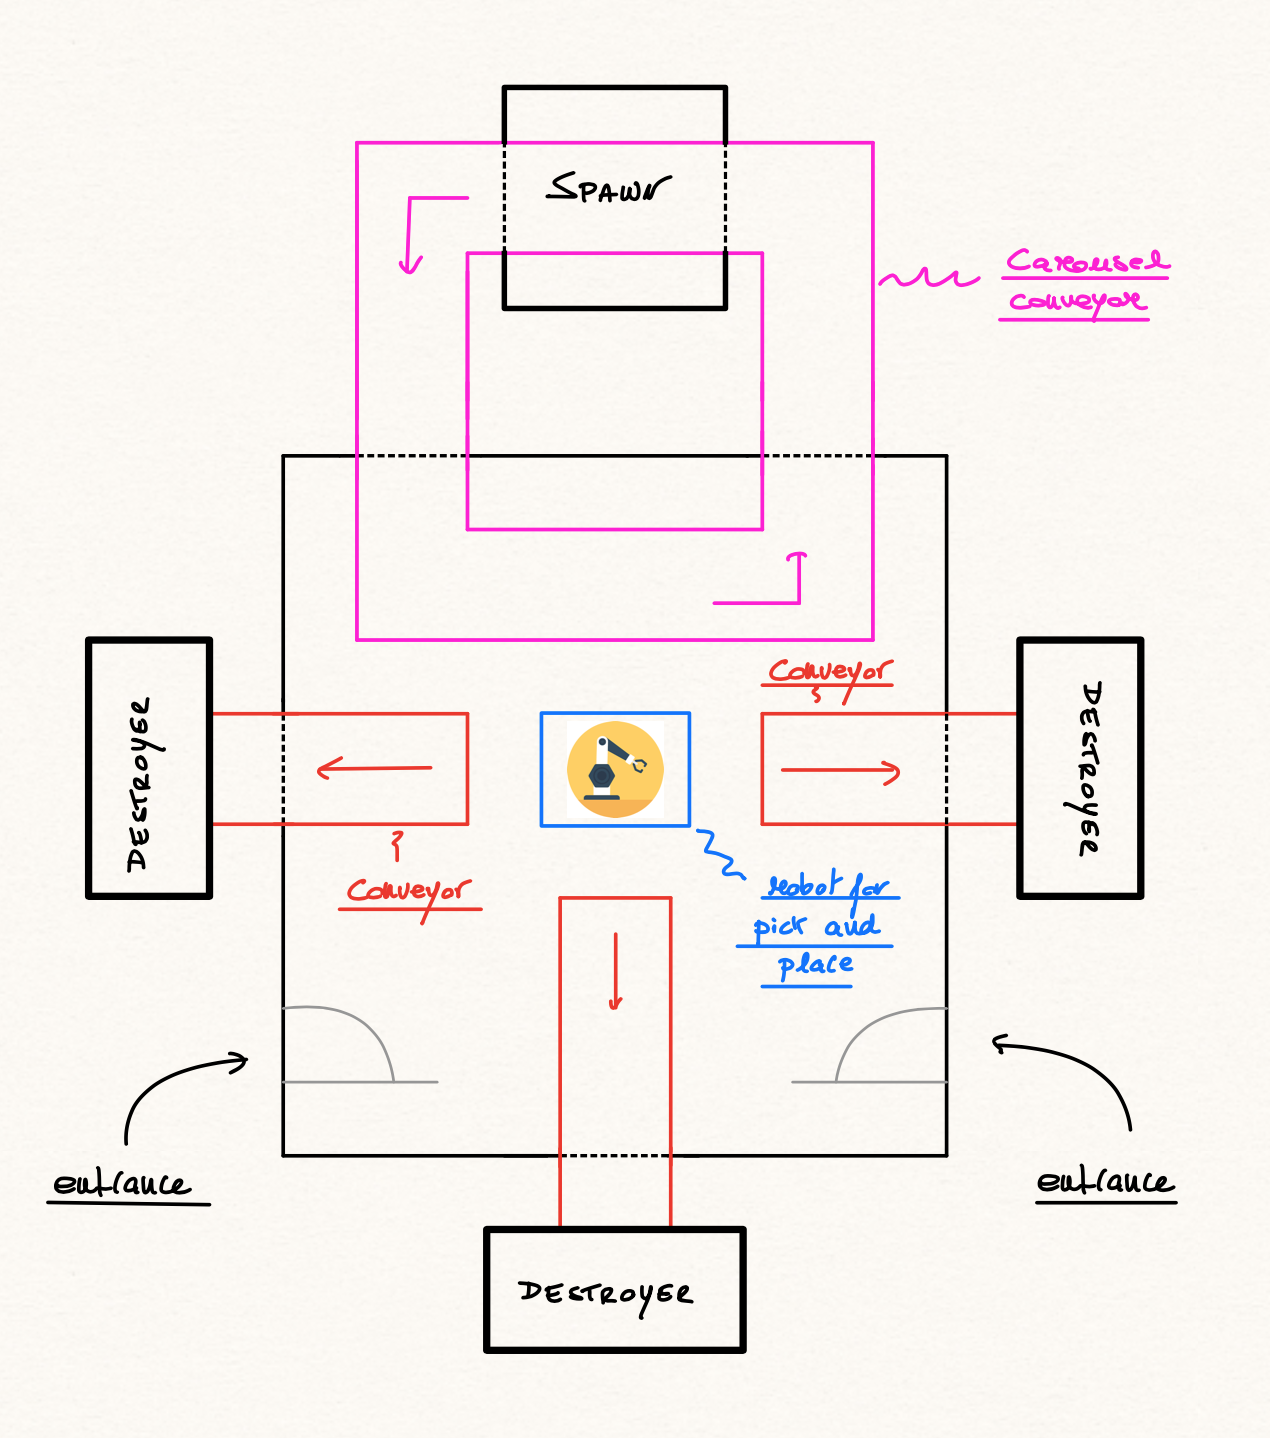 SPAWN
Carousel
conveyor
Conveyor
DESTROYER
DESTROYER
Conveyor
Robot for
pick and
place
entrance
entrance
DESTROYER